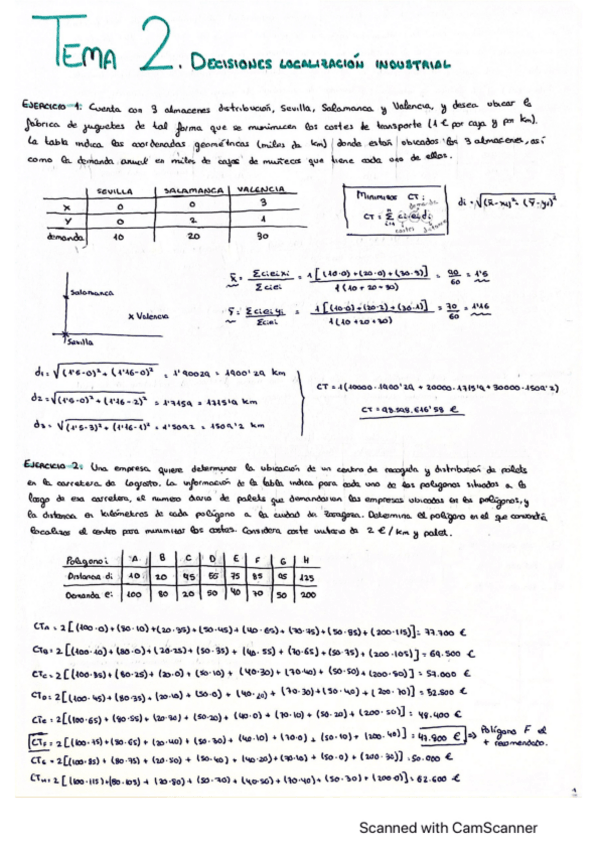 TEMA 2. DECISIONES LOCALIZACIÓN INDUSTRIAL
EJERCICIO 1: Cuenta con 3 almacenes distribución, Sevilla, Salamanca y Valencia, y desea ubicar la
fábrica de juguetes de tal forma que se minimicen los costes de transporte (1 € por caja y por km).
La tabla indica las coordenadas geométricas (miles de km) donde están ubicados los 3 almacenes, así
como la demanda anual en miles de cajas de muñecas que tiene cada uno de ellos.
SEVILLA SALAMANCA VALENCIA
X 0 0 3
Y 0 2 1
demanda 10 20 30
Minimizar CT:
CT = Σ ci ei di
di = √(x̄-xi)² + (ȳ-yi)²
Salamanca
x Valencia
Sevilla
x̄ = Σcieixi / Σciei = 1[(10·0)+(20·0)+(30·3)] / 1(10+20+30) = 90/60 = 1'5
ȳ = Σcieiyi / Σciei = 1[(10·0)+(20·2)+(30·1)] / 1(10+20+30) = 70/60 = 1'16
d1 = √(1'5-0)² + (1'16-0)² = 1'90029 = 1900'29 km
d2 = √(1'5-0)² + (1'16-2)² = 1'7154 = 1715'4 km
d3 = √(1'5-3)² + (1'16-1)² = 1'5092 = 1509'2 km
CT = 1(10000·1900'29 + 20000·1715'4 + 30000·1509'2)
EJERCICIO 2: Una empresa quiere determinar la ubicación de un centro de recogida y distribución de palets
en la carretera de Logroño. La información de la tabla indica para cada uno de los polígonos situados a lo
largo de esa carretera, el número diario de palets que demandan las empresas ubicadas en los polígonos, y
la distancia en kilómetros de cada polígono a la ciudad de Zaragoza. Determina el polígono en el que convendría
localizar el centro para minimizar los costes. Considera coste unitario de 2 € / km y palet.
Polígono i A B C D E F G H
Distancia di 10 20 45 55 75 85 95 125
Demanda ei 100 80 20 50 40 70 50 200
CTA = 2[(100·0)+(80·10)+(20·35)+(50·45)+(40·65)+(70·75)+(50·85)+(200·115)] = 77.700 €
CTB = 2[(100·10)+(80·0)+(20·25)+(50·35)+(40·55)+(70·65)+(50·75)+(200·105)] = 69.500 €
CTC = 2[(100·35)+(80·25)+(20·0)+(50·10)+(40·30)+(70·40)+(50·50)+(200·80)] = 57.000 €
CTD = 2[(100·45)+(80·35)+(20·10)+(50·0)+(40·20)+(70·30)+(50·40)+(200·70)] = 52.500 €
CTE = 2[(100·65)+(80·55)+(20·30)+(50·20)+(40·0)+(70·10)+(50·20)+(200·50)] = 48.400 €
CTF = 2[(100·75)+(80·65)+(20·40)+(50·30)+(40·10)+(70·0)+(50·10)+(200·40)] = 47.800 € ⇒ Polígono F el
+ recomendado.
CTG = 2[(100·85)+(80·75)+(20·50)+(50·40)+(40·20)+(70·10)+(50·0)+(200·30)] = 50.000 €
CTH = 2[(100·115)+(80·105)+(20·80)+(50·70)+(40·50)+(70·40)+(50·30)+(200·0)] = 62.600 €
Scanned with CamScanner